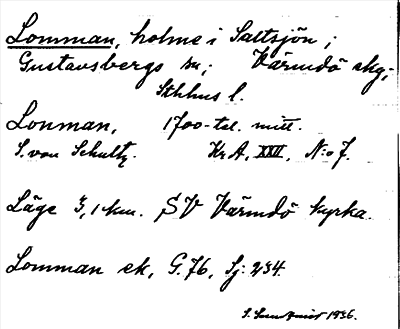 Lomman, holme i Saltsjön;
Gustavsbergs sn; Värmdö skg;
Sthlms l.
Lonman, 1700-tal. mitt.
S. von Schultz. Kr.A, XXII, N:o 7.
Läge 3,1 km. SV Värmdö kyrka.
Lomman ek, G.76, Sj: 234.
1936.